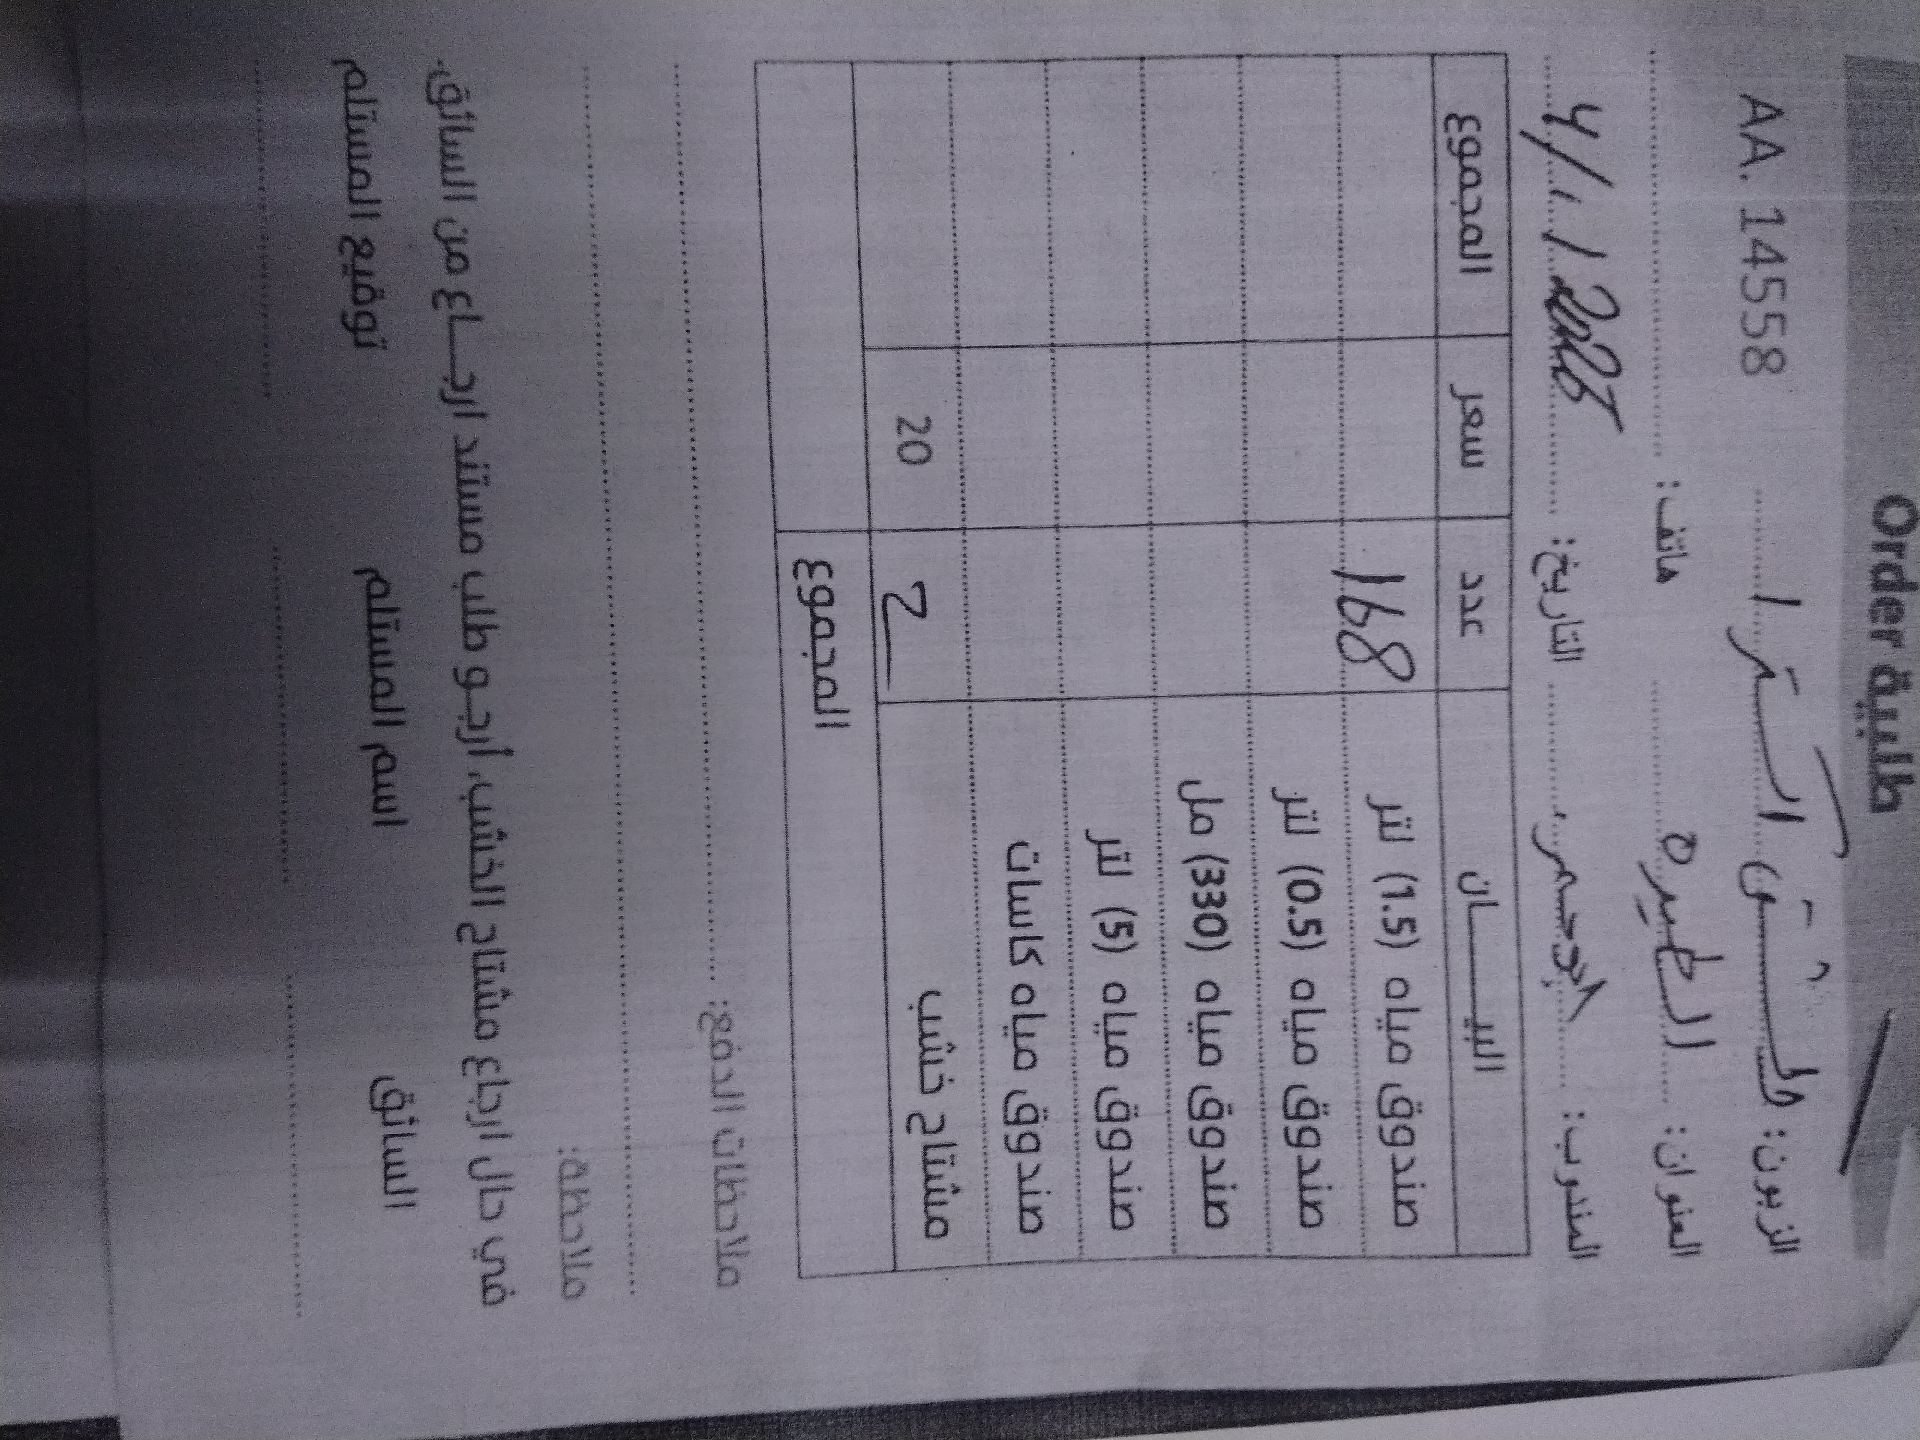 Order طلبية
AA. 14558
الزبون:
العنوان: الطيره هاتف:
المندوب: التاريخ: 4/1/2025
البيـــــان عدد سعر المجموع
صندوق مياه (1.5) لتر 168
صندوق مياه (0.5) لتر
صندوق مياه (330) مل
صندوق مياه (5) لتر
صندوق مياه كاسات
مشتاح خشب 2 20
المجموع
ملاحظات الدفع:
ملاحظة:
في حال ارجاع مشتاح الخشب، أرجـو طلب مستند ارجــاع من السائق.
السائق اسم المستلم توقيع المستلم